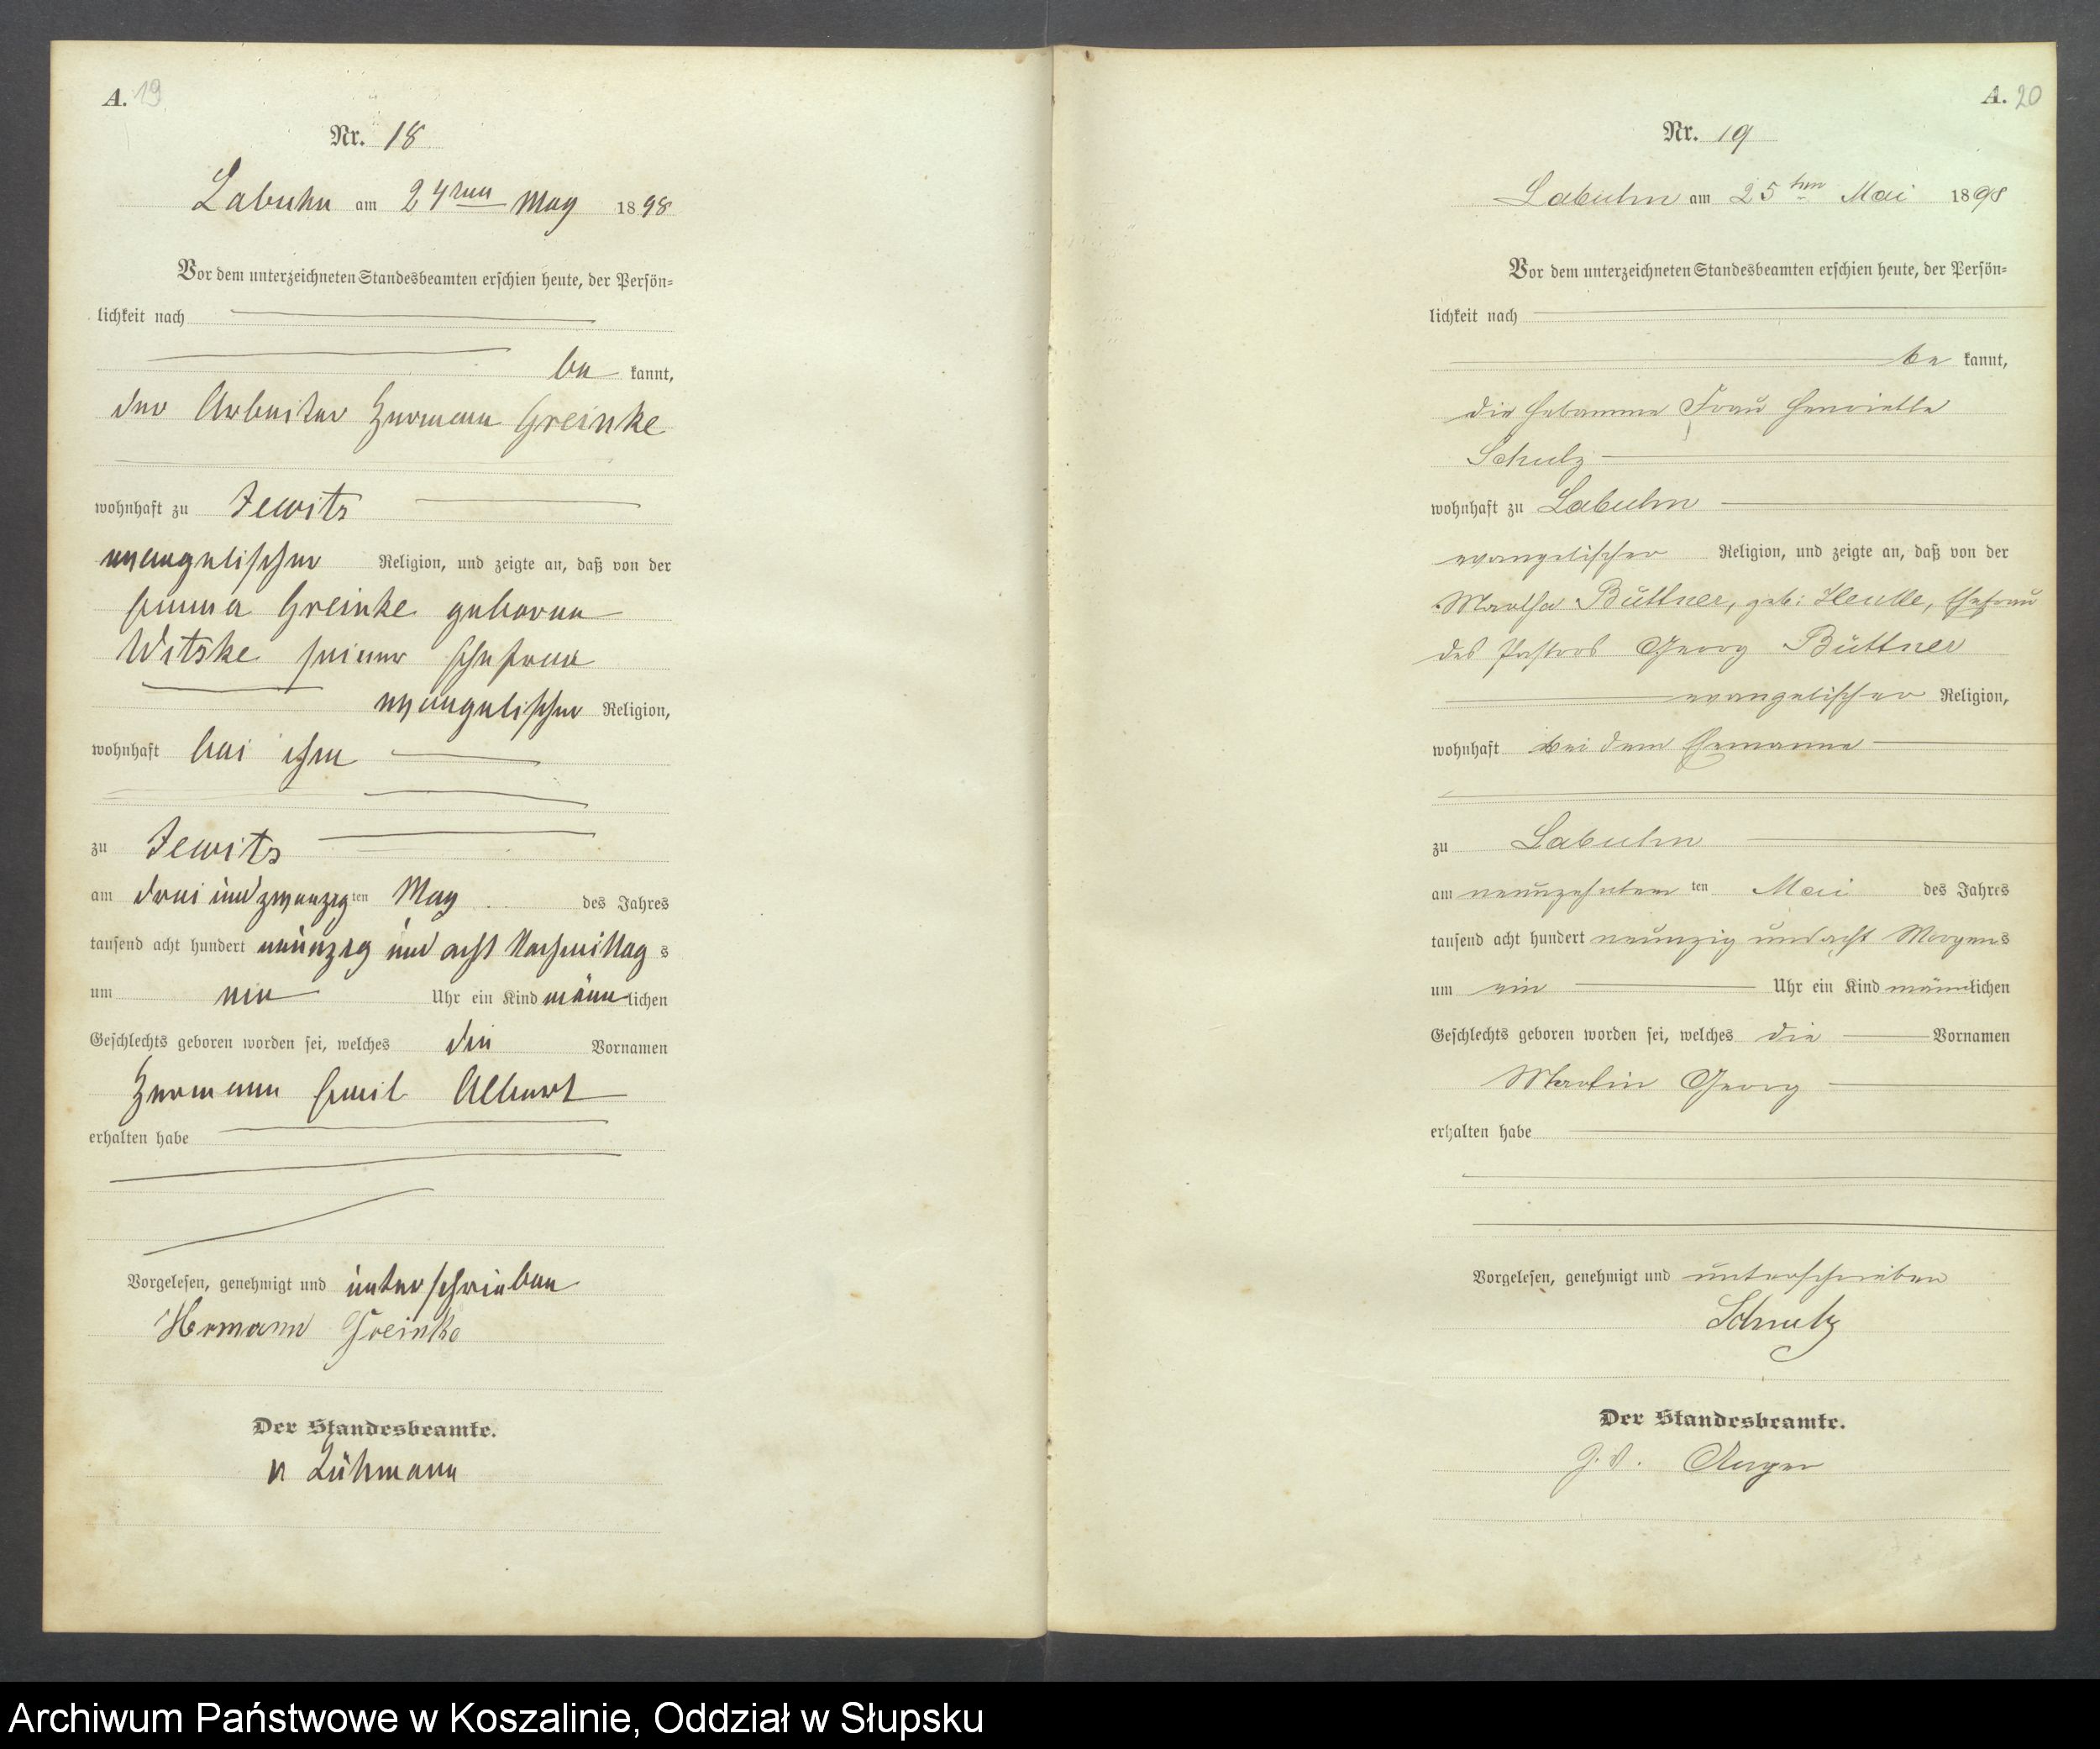 A. 19
Nr. 18
Labuhn am 24ten May 1898
Vor dem unterzeichneten Standesbeamten erschien heute, der Persön=
lichkeit nach
be kannt,
der Arbeiter Hermann Greinke
wohnhaft zu Jewitz
evangelischer Religion, und zeigte an, daß von der
Emma Greinke geborene
Witzke seiner Ehefrau
evangelischer Religion,
wohnhaft bei ihm
zu Jewitz
am drei und zwanzig ten May des Jahres
tausend acht hundert neunzig und acht Nachmittag s
um ein Uhr ein Kind männ lichen
Geschlechts geboren worden sei, welches die Vornamen
Hermann Emil Albert
erhalten habe
Vorgelesen, genehmigt und unterschrieben
Hermann Greinke
Der Standesbeamte.
v Lühmann
A. 20
Nr. 19
Labuhn am 25ten Mai 1898
Vor dem unterzeichneten Standesbeamten erschien heute, der Persön=
lichkeit nach
be kannt,
die Hebamme Frau Henriette
Schulz
wohnhaft zu Labuhn
evangelischer Religion, und zeigte an, daß von der
Martha Büttner, geb: Ehefrau
des Pastors Georg Büttner
evangelischer Religion,
wohnhaft bei dem Ehemanne
zu Labuhn
am neunzehnten ten Mai des Jahres
tausend acht hundert neunzig und acht Morgens
um ein Uhr ein Kind männlichen
Geschlechts geboren worden sei, welches die Vornamen
Martin Georg
erhalten habe
Vorgelesen, genehmigt und unterschrieben
Schulz
Der Standesbeamte.
Archiwum Państwowe w Koszalinie, Oddział w Słupsku